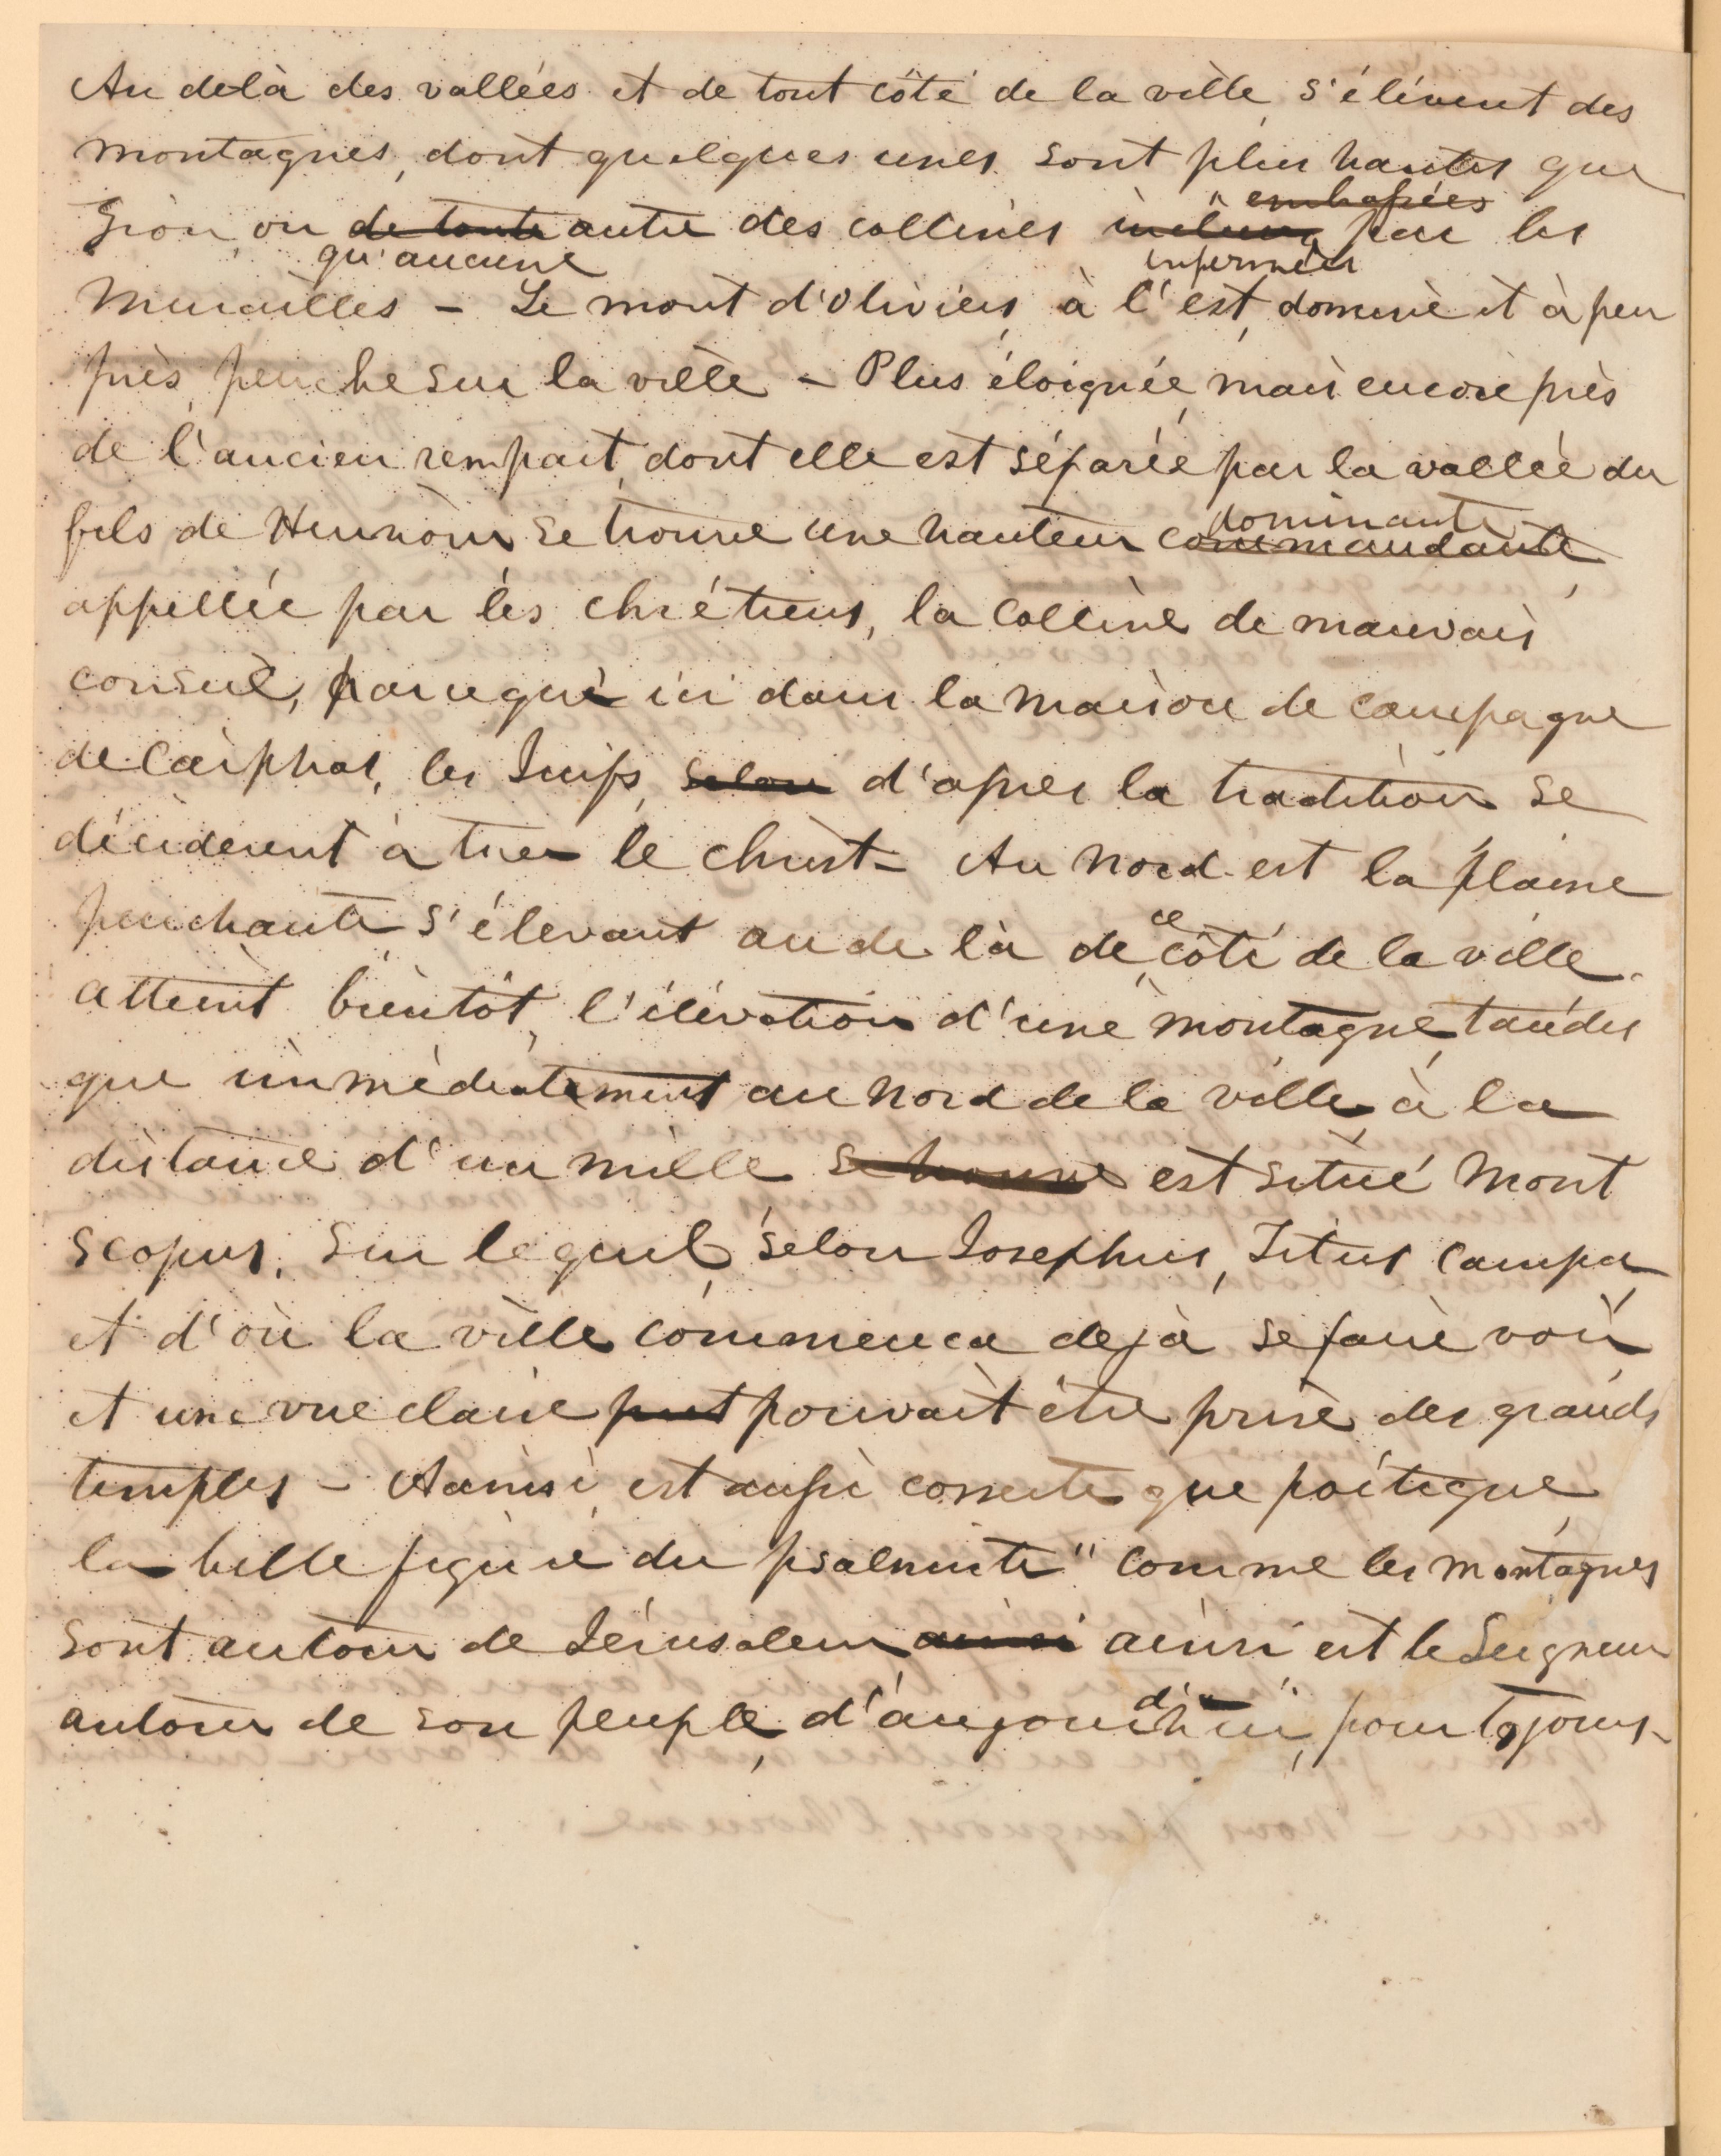 Au delà des vallées et de tout côté de la ville, s'élèvent des
montagnes, dont quelques unes sont plus hautes que
Sion, ou de toute autre des collines incluses par les
qu'aucune
enfermées
Murailles – Le mont d'Oliviers, à l'est, domine et à peu
près, penche sur la ville – Plus éloignée, mais encore près
de l'ancien rempart, dont elle est séparée par la vallée du
fils de Hinnom se trouve une hauteur commandante
dominante
appellée par les chrétiens, la Colline de mauvais
conseil, parceque ici dans la maison de campagne
de Caiphas, les Juifs, selon d'après la tradition se
déciderent à tuer le Christ – Au Nord-est la plaine
penchante, s'élevant au de là de ce côté de la ville
atteint bientôt, l'élévation d'une montagne, tandis
que immédiatement au Nord de la ville, à la
distance d'un mille se trouve est situé Mont
Scopus, sur lequel, selon Josephus, Titus campa
et d'où la ville commenca dejà se faire voir
et une vue claire put pouvait être prise des grands
temples – Aainsi, est aussi correcte que poétique
la belle figure du psalmiste "Comme les montagnes
sont autour de Jérusalem ainsi ainsi est le Seigneur
autour de son peuple, d'aujourd'hui, pour tojours –